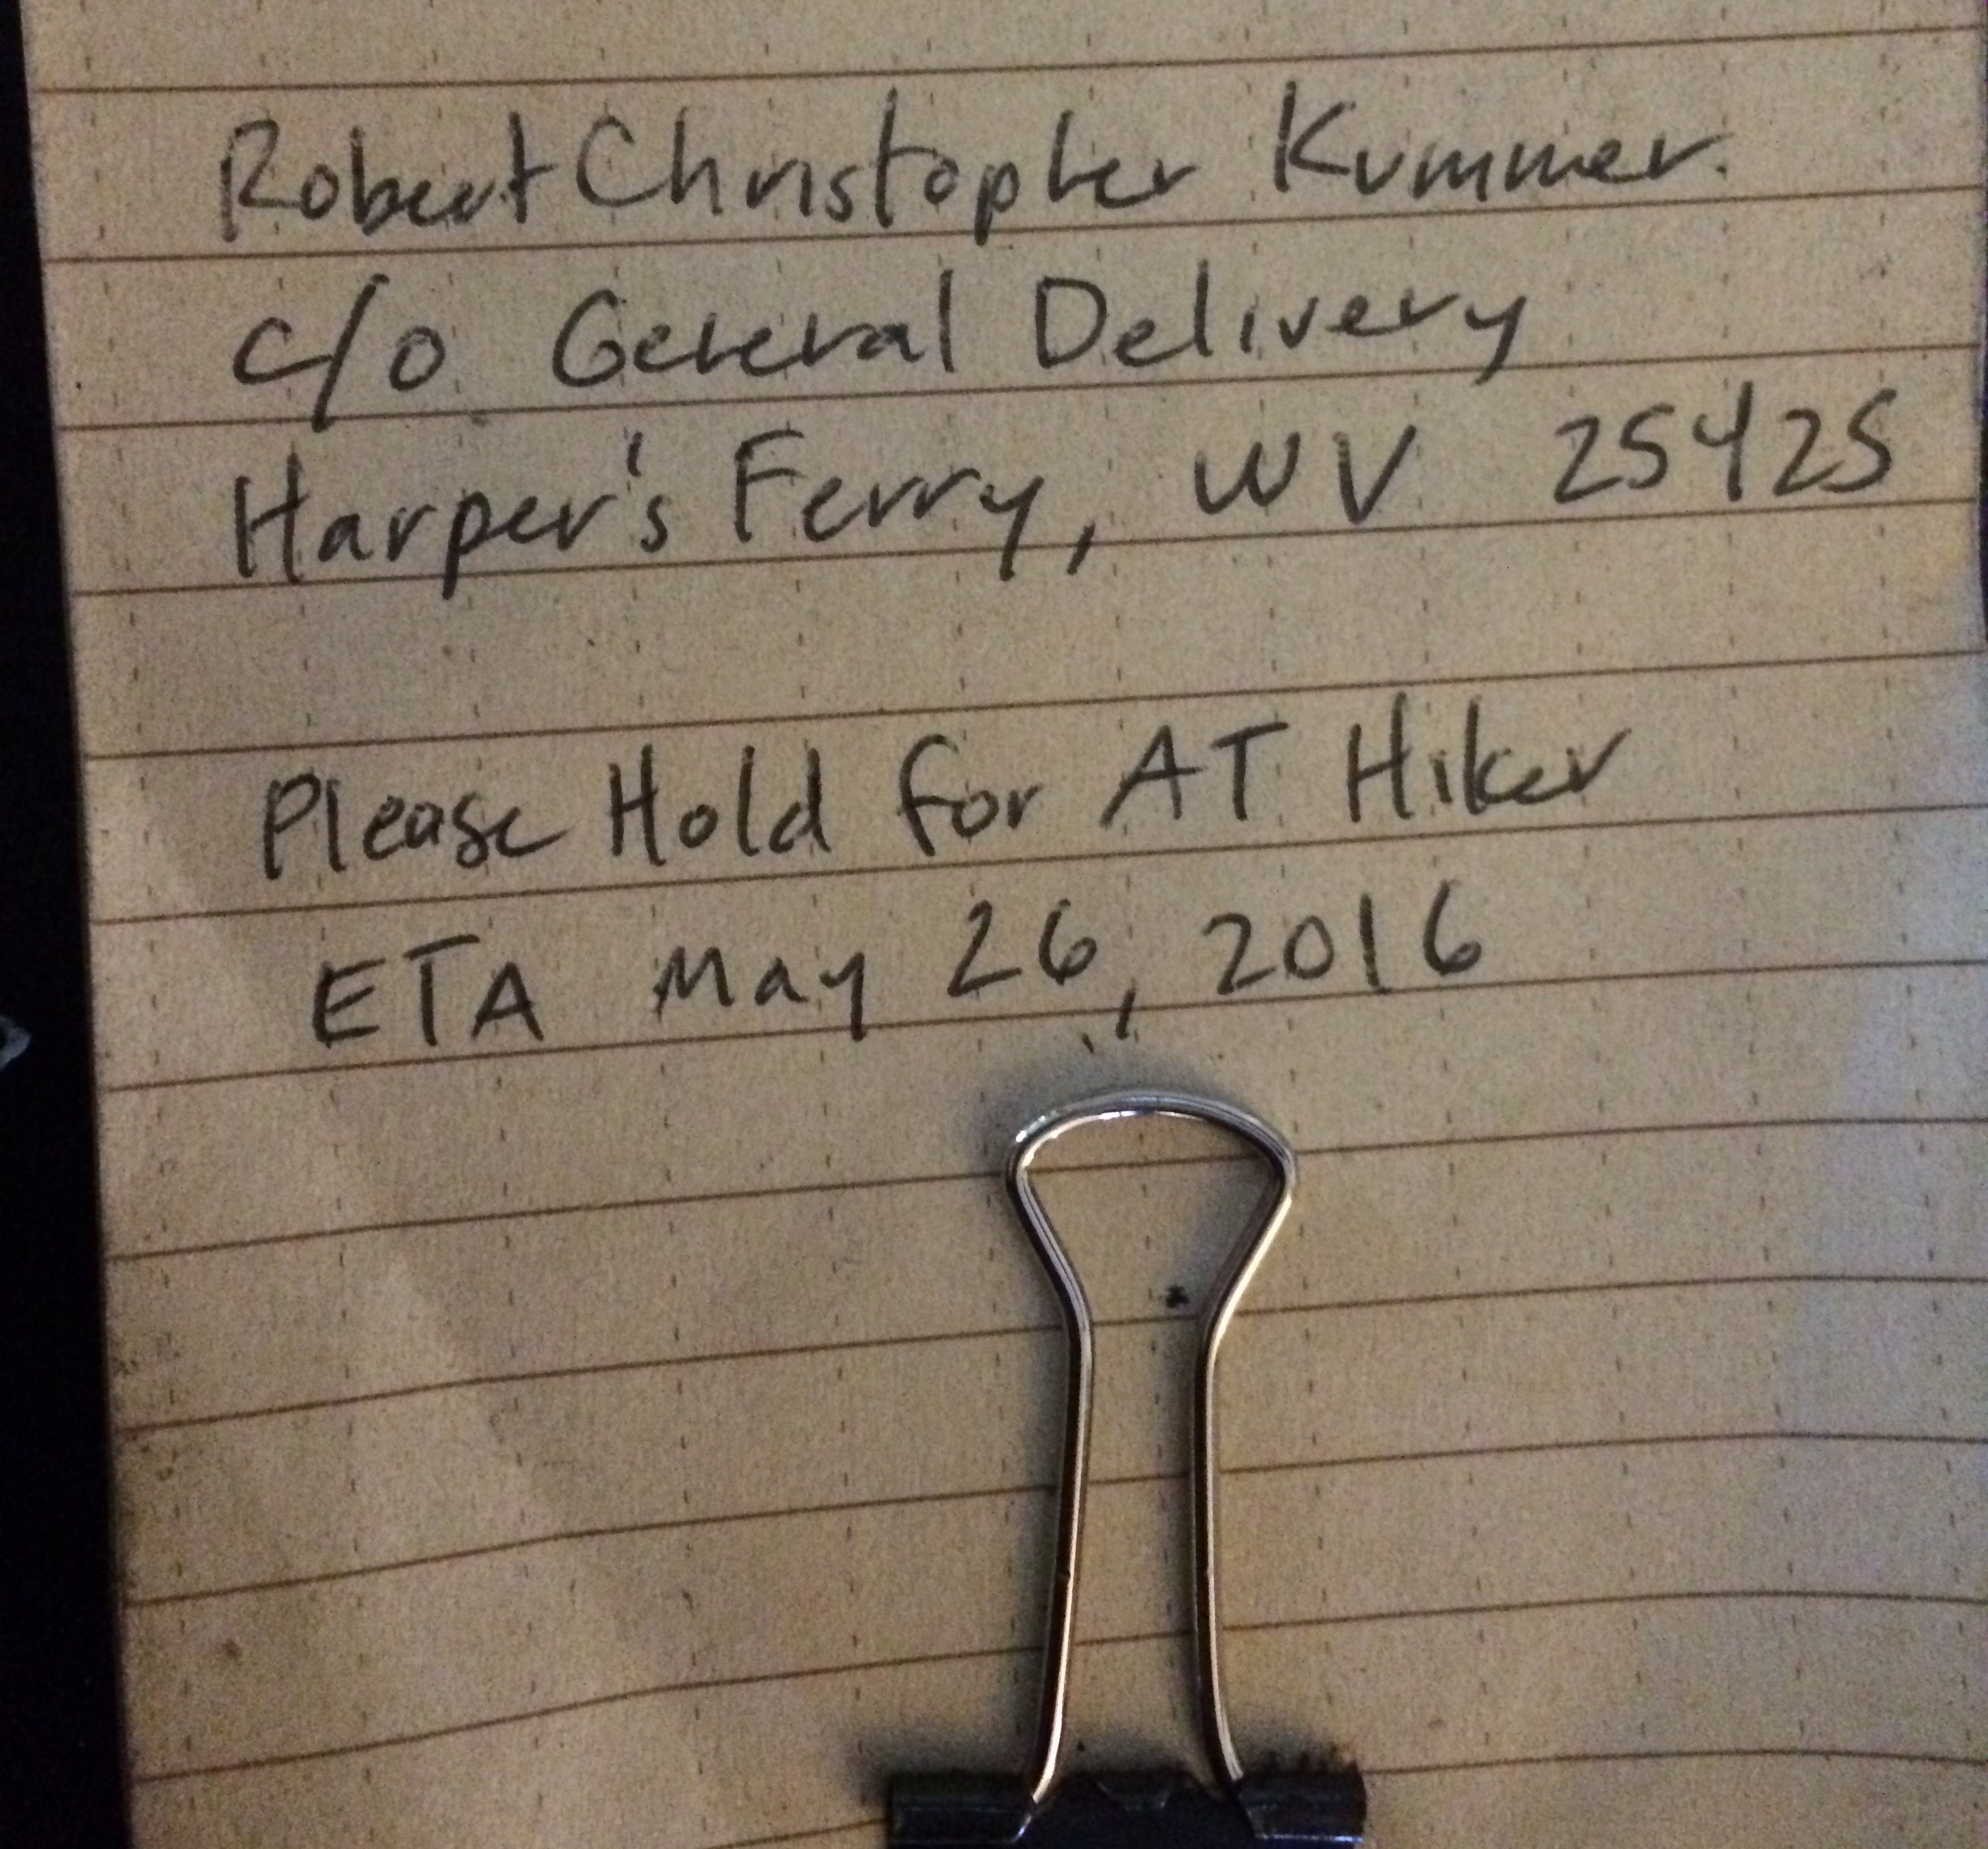 Robert Christopher Kummer
c/o General Delivery
Harper's Ferry, WV 25425
Please Hold for AT Hiker
ETA May 26, 2016